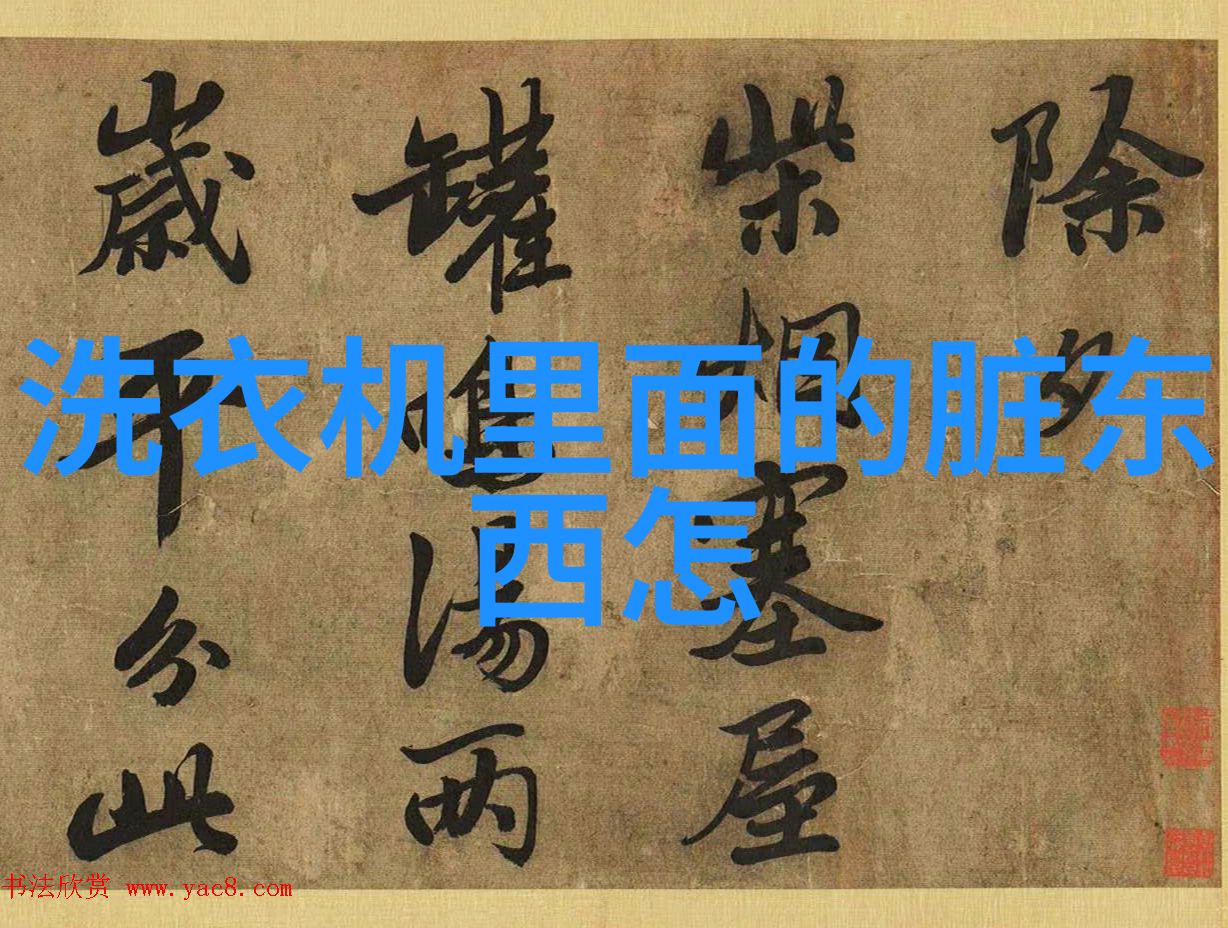 洗衣机里面的脏东
西怎
除夕
柴烟塞屋
罐鳴湯两
嵗平分此
书法欣赏 www.yac8.com